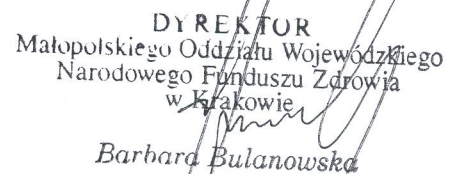 DYREKTOR
Małopolskiego Oddziału Wojewódzkiego
Narodowego Funduszu Zdrowia
w Krakowie
Barbara Bulanowska